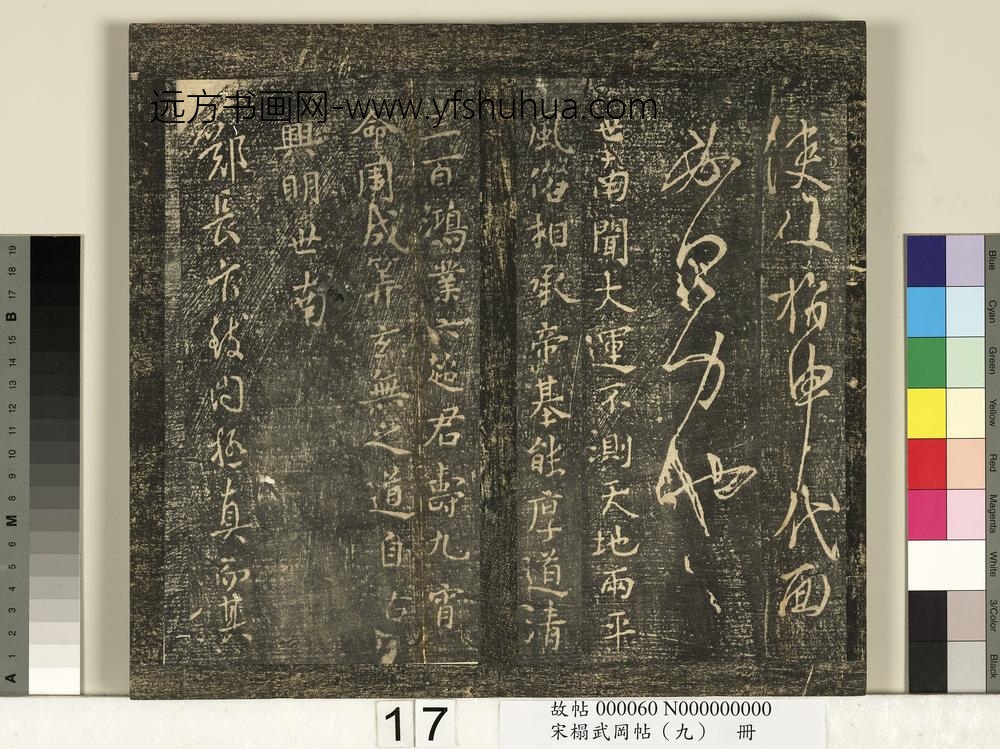 远方书画网-www.yfshuhua.com
使及指申代面
力也
世南聞大運不測天地兩平
風俗相承帝基能厚道清
三百鴻業六超君壽九霄
命周成筭玄無之道自古
興明世南
鄭長官致問極真而其
17
故帖 000060 N000000000
宋榻武岡帖（九） 冊
Blue
Cyan
Green
Yellow
Red
Magenta
White
3/Color
Black
A 1 2 3 4 5 6 M 8 9 10 11 12 13 14 15 B 17 18 19